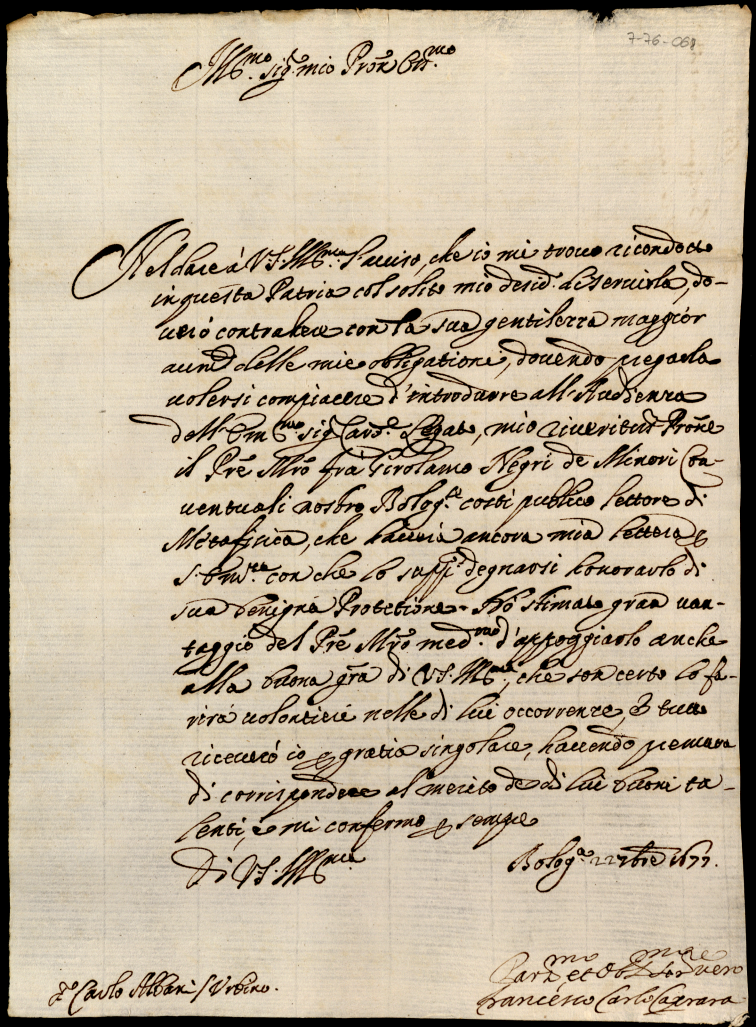 7-76-068
Ill.mo sig.r mio Pron Oss.mo
Nel dare à V.S. Ill.ma l'auuiso, che io mi trouo ricondotto
in questa Patria col solito mio desid.o di seruirla, do-
uerò contrahere con la sua gentilezza maggior
aum.to delle mie obligationi, douendo pregarla
uolersi compiacere d'introdurre all'Audienza
dell'Em.mo sig. Card.le Legato, mio riuerit.mo Prone
il Pre Mro fra Girolamo Negri de Minori Con-
uentuali nostro Bolog.se costì publico lettore di
Metafisica, che hauerà ancora mia lettera p
S. Em.za con che lo supp.co degnarsi honorarlo di
sua benigna Protetione. Hò stimato gran uan-
taggio del Pre Mro med.mo d'appoggiarlo anche
alla buona gra di V.S. Ill.ma, che son certo lo fa-
rirà uolontieri nelle di lui occorrenze, è tutto
riceuerò io p gratia singolare, hauendo premura
di corrispondere al merito de di lui buoni ta-
lenti, è mi confermo p sempre
Di V.S. Ill.ma
Bolog.a 22 7bre 1677.
Par.mo et Obl.mo Ser.re uero
Francesco Carlo Caprara
S.r Carlo Albani / Urbino.